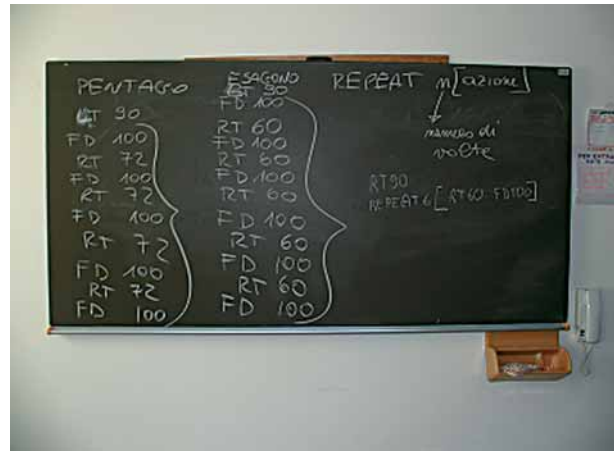 PENTAGO
RT 90
FD 100
RT 72
FD 100
RT 72
FD 100
RT 72
FD 100
RT 72
FD 100
ESAGONO
RT 90
FD 100
RT 60
FD 100
RT 60
FD 100
RT 60
FD 100
RT 60
FD 100
RT 60
FD 100
REPEAT n[azione]
numero di
volte
RT90
REPEAT 6[RT60 FD100]